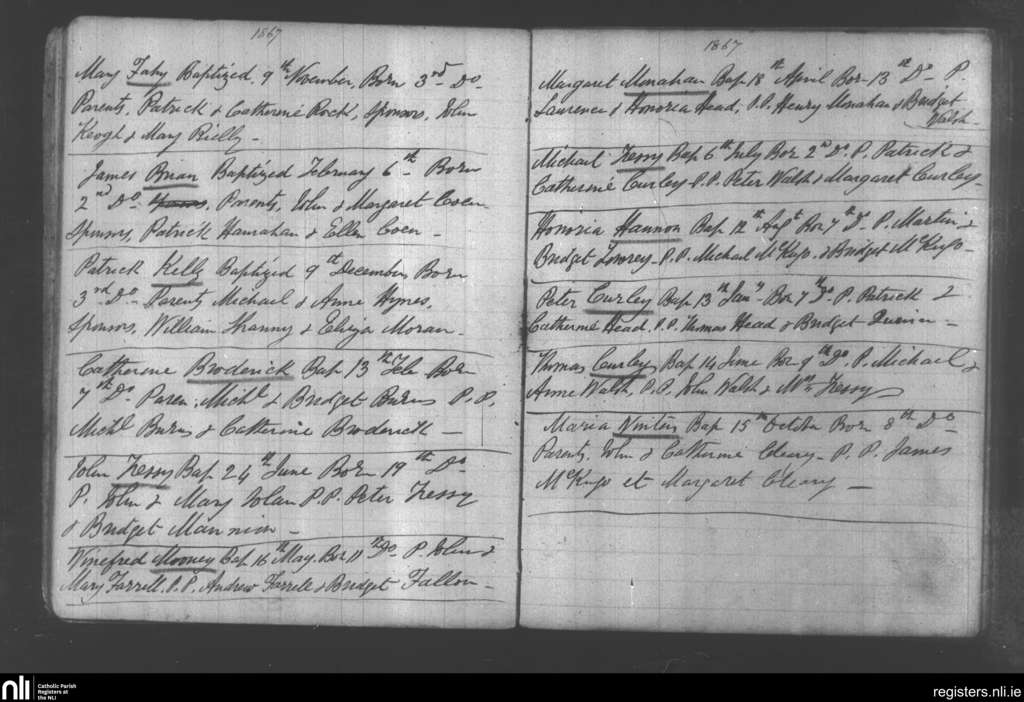 1867
Mary Fahy Baptized 9th November, Born 3rd Do
Parents, Patrick & Catherine Rock, Sponsors, John
Keogh & Mary Reilly -
James Brian Baptized February 6th Born
2nd Do Parents, John & Margaret Coen
Sponsors, Patrick Hanrahan & Ellen Coen -
Patrick Kelly Baptized 9th December Born
3rd Do Parents Michael & Anne Hynes,
Sponsors, William & Eliza Moran -
Catherine Broderick Bap 13th Feb Born
7th Do Paren. Michl & Bridget Burns P.P.
Michl Burns & Catherine Broderick -
John Fessy Bap 24th June Born 19th Do
P. John & Mary Dolan P.P. Peter Fessy
& Bridget Mannion -
Winefred Mooney Bap 16th May. Bor 11th Do P. John &
Mary Farrell. P.P. Andrew Farrell & Bridget Fallon -
1867
Margaret Monahan Bap 18th April Bor 13th Do P.
Laurence & Honoria Head, P.P. Henry Monahan & Bridget
Walsh -
Michael Fessy Bap 6th July Bor 2nd Do P. Patrick &
Catherine Curley P.P. Peter Walsh & Margaret Curley -
Honoria Hannon Bap 12th Augt Bor 7th Do P. Martin &
Bridget Lowrey - P.P. Michael McKugo & Bridget McKugo -
Peter Curley Bap 13th Jany Bor 7th Do P. Patrick &
Catherine Head. P.P. Thomas Head & Bridget -
Thomas Curley Bap 14 June Bor 9th Do. P. Michael &
Anne Walsh, P.P. John Walsh & Wm Fessy
Maria Winters Bap 15th October Born 8th Do
Parents, John & Catherine Cleary - P.P. James
McKugo et Margaret Cleary -
nli
Catholic Parish
Registers at
the NLI
registers.nli.ie